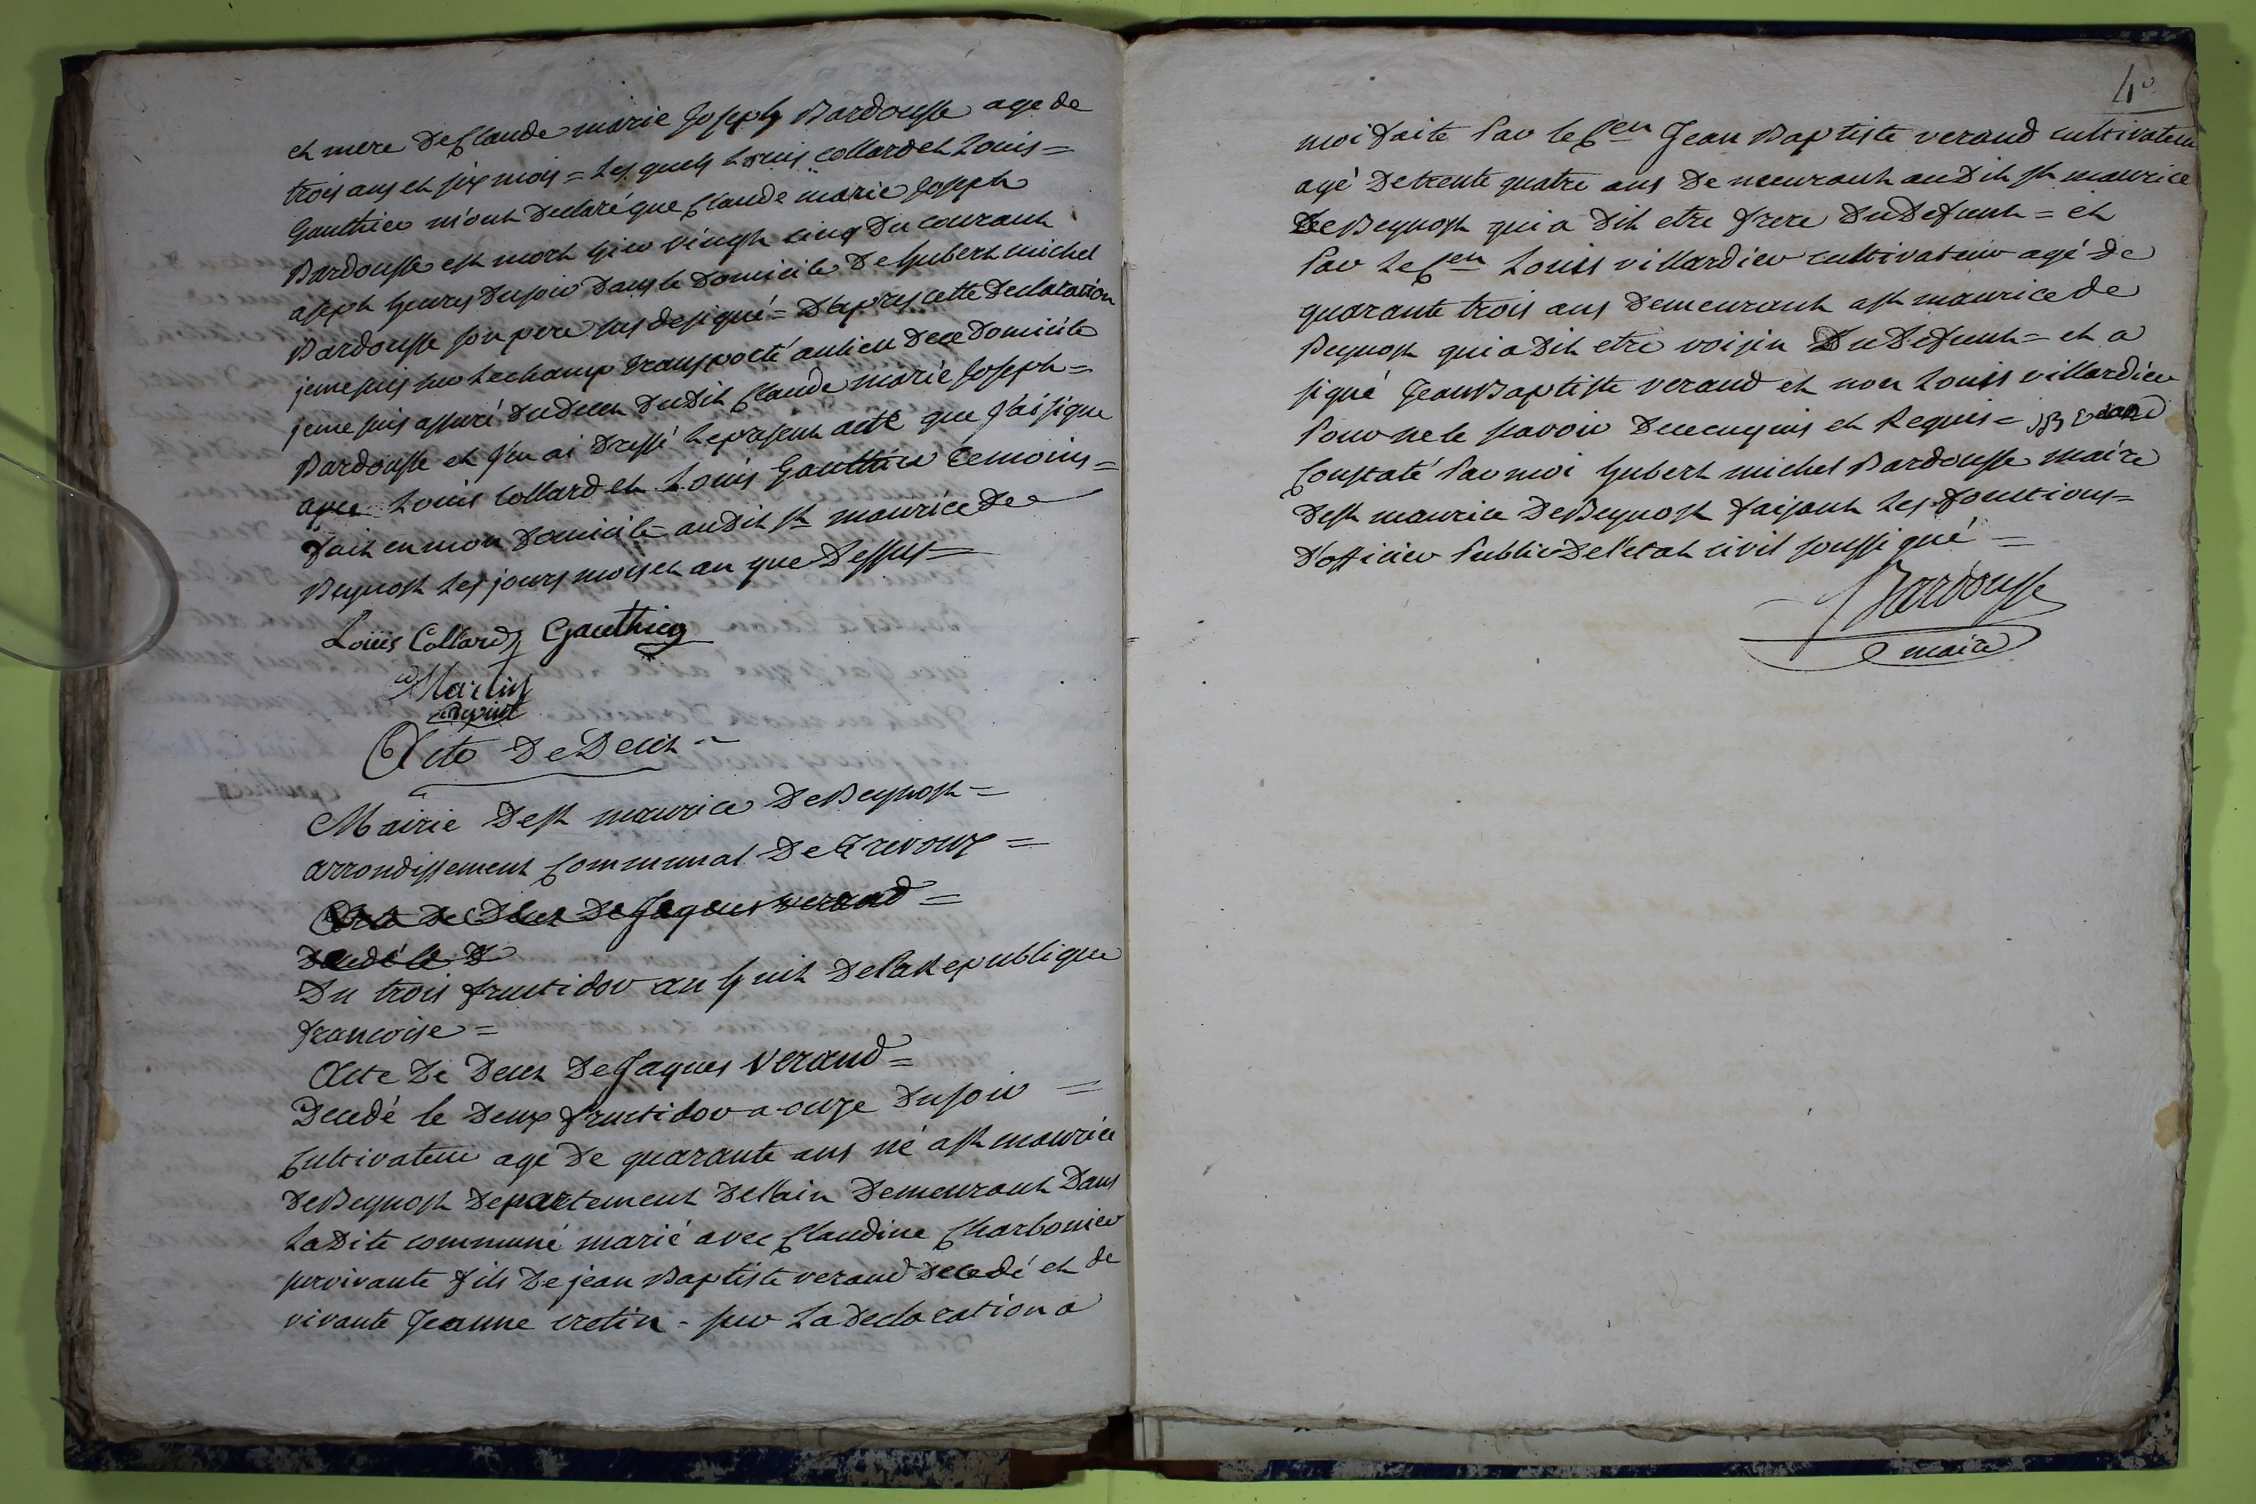 et mere de Claude marie Joseph Bardousse age de
trois ans et six mois = Lesquels Louis collard et Louis =
Gauthier m'ont declaré que Claude marie Joseph
Bardousse est mort hier vingt cinq du courant
a sept heures du soir dans le domicile de hubert michel
Bardousse son pere sus designé = D'apres cette declaration
je me suis sur le champ transporté au lieu de ce domicile
je me suis assuré du deces dudit Claude marie Joseph =
Bardousse et J'en ai dressé le present acte que J'ai signe
avec Louis Collard et Louis Gauthier temoins =
fait en mon domicile audit st maurice de
Beynost les jours mois et an que Dessus =
Louis Collard Gauthier
Martin
adjoint
Acte De Deces
Mairie de st maurice De Beynost =
arrondissement Communal De Trevoux =
Acte De Deces De Jaques verand =
Decedé le D
Du trois fructidor an huit De la Republique
francoise =
Acte De Deces De Jaques Verand =
Decedé le Deux fructidor a onze du soir =
Cultivateur agé De quarante ans né a st maurice
De Beynost Departement De l'ain Demeurant Dans
La Dite commune marié avec Claudine Charbonier
survivante fils De jean Baptiste verand Decedé et de
vivante Jeanne cretin - sur La Declaration a
4
moi faite Par le Cen Jean Baptiste verand cultivateur
agé De trente quatre ans Demeurant audit st maurice
De Beynost qui a Dit etre frere Du Defunt = et
Par Le Cen Louis villardier cultivateur agé de
quarante trois ans Demeurant a st maurice de
Beynost qui a Dit etre voisin Du Defunt = et a
signé Jean Baptiste verand et non Louis villardier
Pour ne le savoir De ce enquis et Requis = JB verand
Constaté Par moi hubert michel Bardousse maire
De st maurice De Beynost faisant les fonctions =
D'officier Public De l'etat civil soussigné =
Bardousse
maire